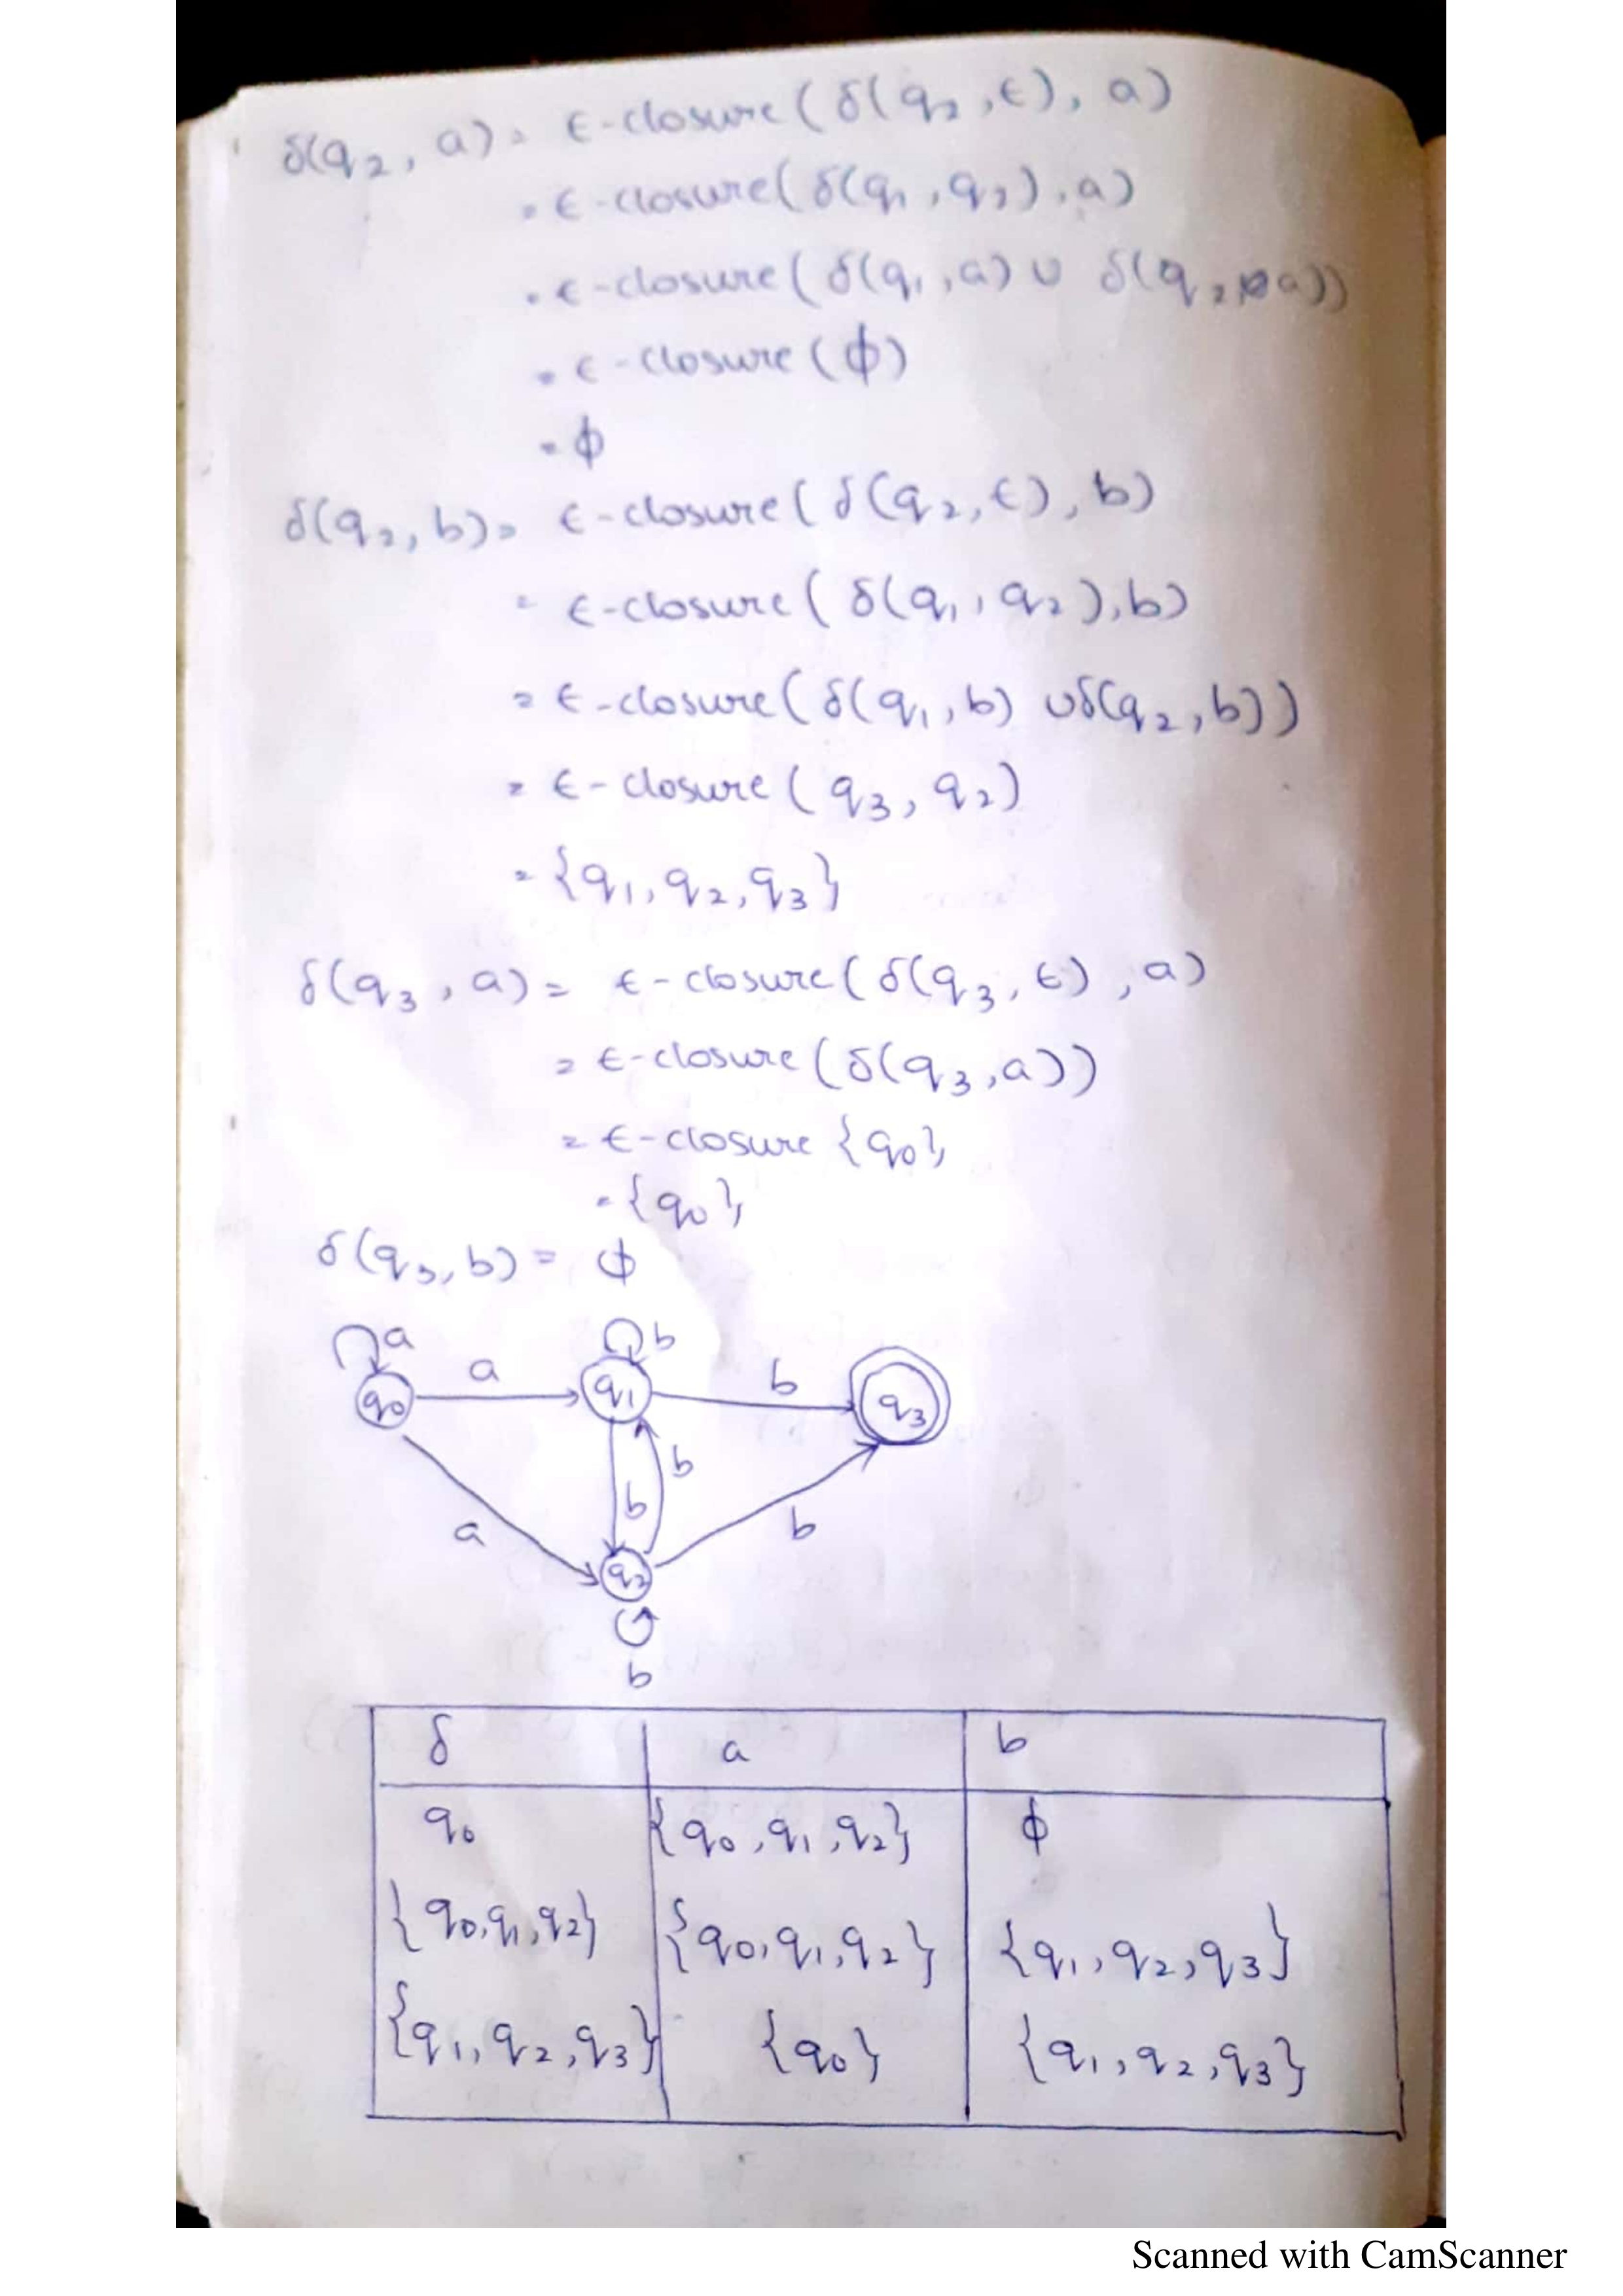 δ(q₂, a) = ϵ-closure(δ(q₂,ϵ), a)
= ϵ-closure(δ(q₁,q₂),a)
= ϵ-closure(δ(q₁,a) ∪ δ(q₂,a))
= ϵ-closure(ϕ)
= ϕ
δ(q₂, b) = ϵ-closure(δ(q₂,ϵ), b)
= ϵ-closure(δ(q₁,q₂),b)
= ϵ-closure(δ(q₁,b) ∪δ(q₂,b))
= ϵ-closure(q₃, q₂)
= {q₁, q₂, q₃}
δ(q₃, a) = ϵ-closure(δ(q₃, ϵ), a)
= ϵ-closure(δ(q₃,a))
= ϵ-closure {q₀}
= {q₀}
δ(q₃, b) = ϕ
a b
a b
q₀ q₁ q₃
b
b
a b
q₂
b
δ a b
q₀ {q₀,q₁,q₂} ϕ
{q₀,q₁,q₂} {q₀,q₁,q₂} {q₁,q₂,q₃}
{q₁,q₂,q₃} {q₀} {q₁,q₂,q₃}
Scanned with CamScanner